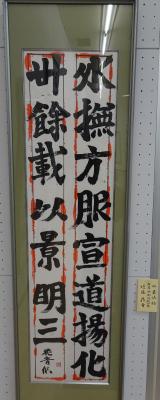 氷撫方服宣道揚化
卅餘載以景明三